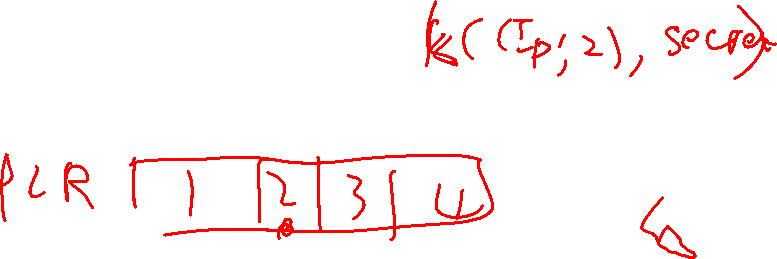 k((Ip,2), secret)
PCR 1 2 3 4